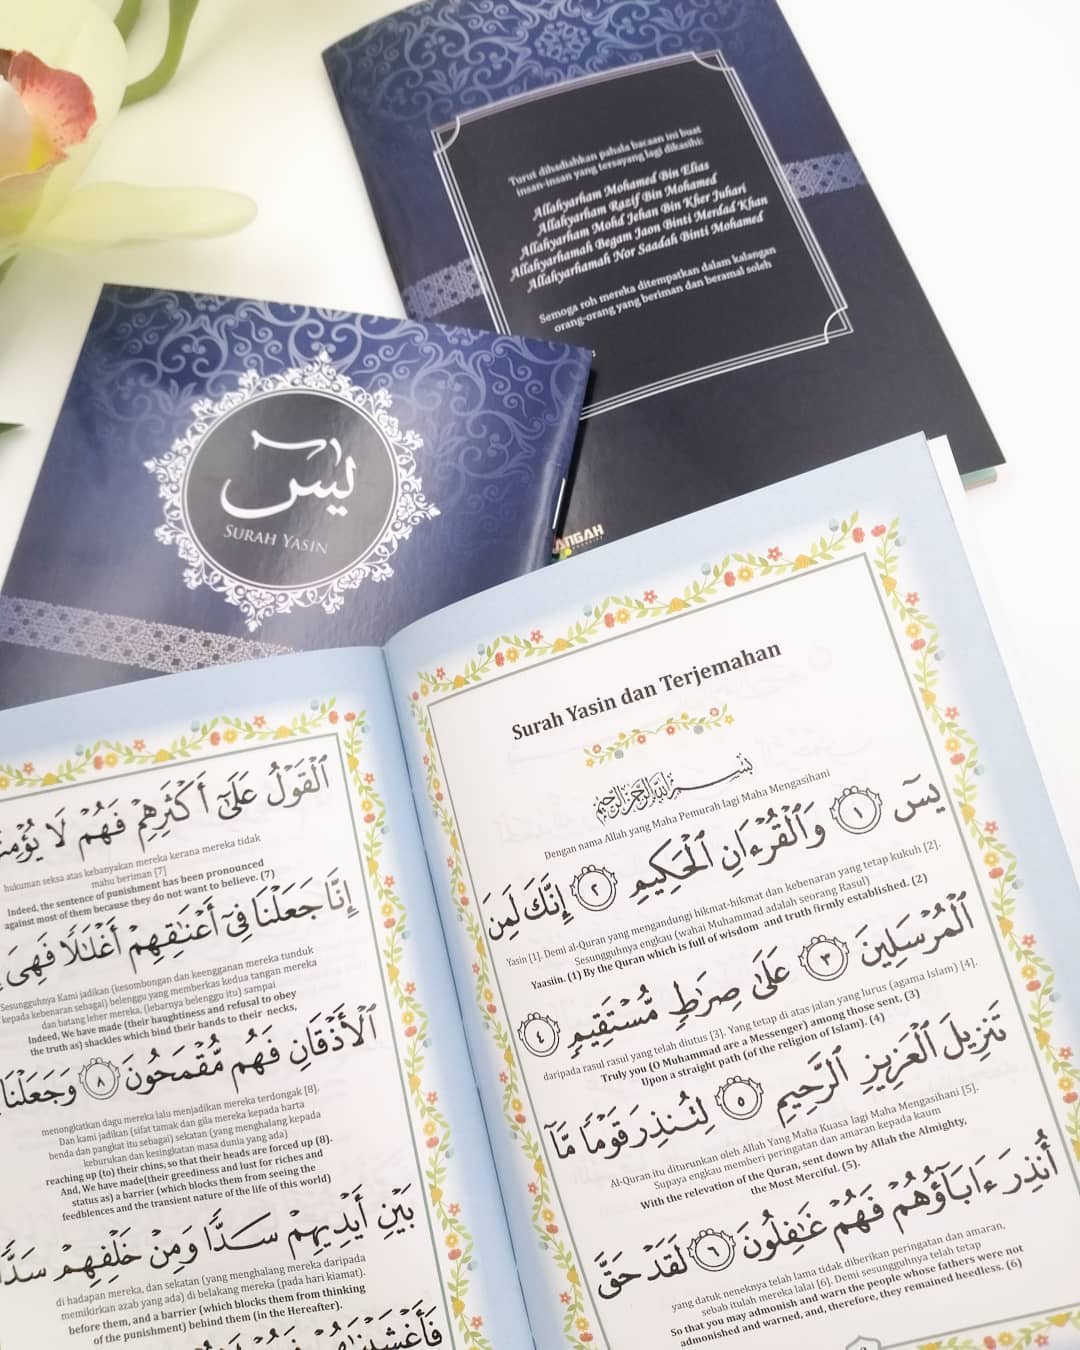 Turut dihadiahkan pahala bacaan ini buat
insan-insan yang tersayang lagi dikasihi:
Allahyarham Mohamed Bin Elias
Allahyarham Razif Bin Mohamed
Allahyarham Mohd Jehan Bin Kher Juhari
Allahyarhamah Begam Jaon Binti Merdad Khan
Allahyarhamah Nor Saadah Binti Mohamed
Semoga roh mereka ditempatkan dalam kalangan
orang-orang yang beriman dan beramal soleh
ANGAH
يسٓ
SURAH YASIN
ٱلْقَوْلُ عَلَىٰٓ أَكْثَرِهِمْ فَهُمْ لَا
hukuman seksa atas kebanyakan mereka kerana mereka tidak
mahu beriman [7]
Indeed, the sentence of punishment has been pronounced
against most of them because they do not want to believe. (7)
إِنَّا جَعَلْنَا فِىٓ أَعْنَـٰقِهِمْ أَغْلَـٰلًا فَهِىَ
Sesungguhnya Kami jadikan (kesombongan dan keengganan mereka tunduk
kepada kebenaran sebagai) belenggu yang memberkas kedua tangan mereka
dan batang leher mereka, (lebarnya belenggu itu) sampai
Indeed, We have made (their haughtiness and refusal to obey
the truth as) shackles which bind their hands to their necks,
ٱلْأَذْقَانِ فَهُم مُّقْمَحُونَ ٨ وَجَعَلْنَا
menongkatkan dagu mereka lalu menjadikan mereka terdongak [8].
Dan kami jadikan (sifat tamak dan gila mereka kepada harta
benda dan pangkat itu sebagai) sekatan (yang menghalang kepada
keburukan dan kesingkatan masa dunia yang ada)
reaching up (to) their chins, so that their heads are forced up (8).
And, We have made(their greediness and lust for riches and
status as) a barrier (which blocks them from seeing the
feedblences and the transient nature of the life of this world)
بَيْنِ أَيْدِيهِمْ سَدًّا وَمِنْ خَلْفِهِمْ سَدًّا
di hadapan mereka, dan sekatan (yang menghalang mereka daripada
memikirkan azab yang ada) di belakang mereka (pada hari kiamat).
before them, and a barrier (which blocks them from thinking
of the punishment) behind them (in the Hereafter).
Surah Yasin dan Terjemahan
بِسْمِ ٱللَّهِ ٱلرَّحْمَـٰنِ ٱلرَّحِيمِ
Dengan nama Allah yang Maha Pemurah lagi Maha Mengasihani
يسٓ ١ وَٱلْقُرْءَانِ ٱلْحَكِيمِ ٢ إِنَّكَ لَمِنَ
Yasin [1]. Demi al-Quran yang mengandungi hikmat-hikmat dan kebenaran yang tetap kukuh [2].
Sesungguhnya engkau (wahai Muhammad adalah seorang Rasul)
Yaasin. (1) By the Quran which is full of wisdom and truth firmly established. (2)
ٱلْمُرْسَلِينَ ٣ عَلَىٰ صِرَٰطٍ مُّسْتَقِيمٍ ٤
daripada rasul rasul yang telah diutus [3]. Yang tetap di atas jalan yang lurus (agama Islam) [4].
Truly you (O Muhammad are a Messenger) among those sent, (3)
Upon a straight path (of the religion of Islam). (4)
تَنزِيلَ ٱلْعَزِيزِ ٱلرَّحِيمِ ٥ لِتُنذِرَ قَوْمًا مَّآ
Al-Quran itu diturunkan oleh Allah Yang Maha Kuasa lagi Maha Mengasihani [5].
Supaya engkau memberi peringatan dan amaran kepada kaum
With the relevation of the Quran, sent down by Allah the Almighty,
the Most Merciful. (5).
أُنذِرَ ءَابَآؤُهُمْ فَهُمْ غَـٰفِلُونَ ٦ لَقَدْ حَقَّ
yang datuk neneknya telah lama tidak diberikan peringatan dan amaran,
sebab itulah mereka lalai [6]. Demi sesungguhnya telah tetap
So that you may admonish and warn the people whose fathers were not
admonished and warned, and, therefore, they remained heedless. (6)